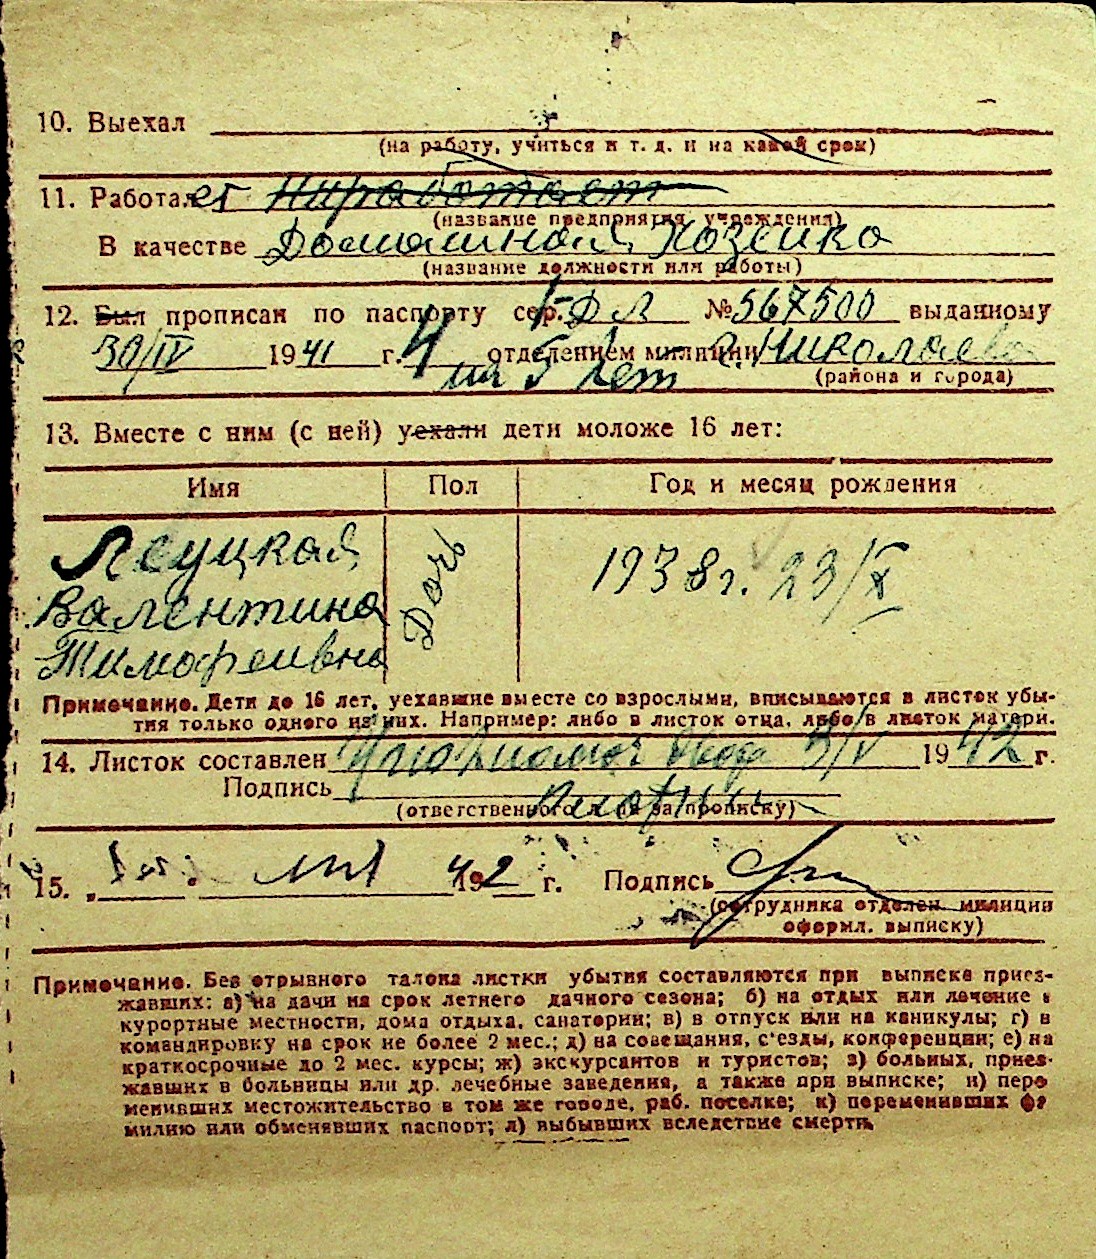 10. Выехал
(на работу, учиться и т. д. и на какой срок)
11. Работает Ниработает
(название предприятия, учреждения)
В качестве Домашная Хозейка
(название должности или работы)
12. Был прописан по паспорту сер. I-ДЛ № 567500 выданному
30/IV 1941 г. 4 отделением милиции г. Николаева
на 5 лет
(района и города)
13. Вместе с ним (с ней) уехали дети моложе 16 лет:
Имя Пол Год и месяц рождения
Леуцкая
Валентина
Тимофеивна
Дочь
1938 г. 23/X
Примечание. Дети до 16 лет, уехавшие вместе со взрослыми, вписываются в листок убы-
тия только одного из них. Например: либо в листок отца, либо в листок матери.
14. Листок составлен 3/V 1942 г.
Подпись
(ответственного за прописку)
15. 42 г. Подпись
(сотрудника отделен. милиции
оформл. выписку)
Примечание. Без отрывного талона листки убытия составляются при выписке приез-
жавших: а) на дачи на срок летнего дачного сезона; б) на отдых или лечение в
курортные местности, дома отдыха, санатории; в) в отпуск или на каникулы; г) в
командировку на срок не более 2 мес.; д) на совещания, с'езды, конференции; е) на
краткосрочные до 2 мес. курсы; ж) экскурсантов и туристов; з) больных, приез-
жавших в больницы или др. лечебные заведения, а также при выписке; и) пере
менивших местожительство в том же городе, раб. поселке; к) переменивших фа
милию или обменявших паспорт; л) выбывших вследствие смерти.